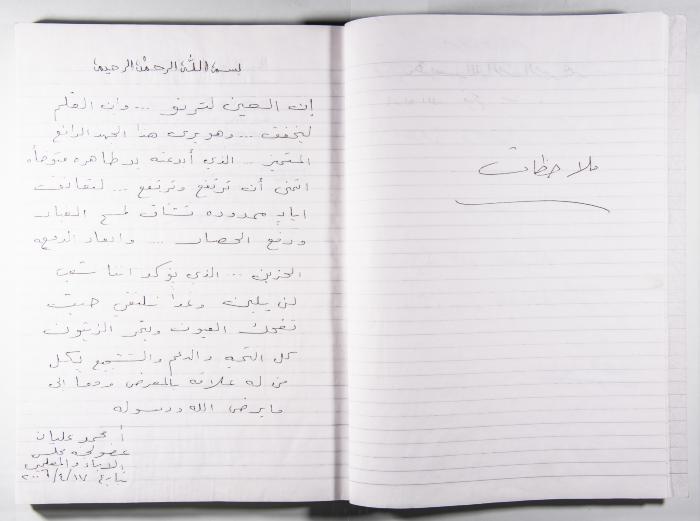 بسم الله الرحمن الرحيم
إن العين لترنو ... وان القلم
ليخفق ... وهو يرى هذا الجهد الرائع
المتميز ... الذي أبدعته يد طاهره متوضأه
اتمنى أن ترتفع وترتفع ... لتعانق
اياد ممدوده تشتاق لمسح الغبار
ورفع الحصار ... وابعاد الدمعه
الحزين ... الذي يؤكد اننا شعب
لن يلين وغدا نلتقي حيث
تضحك العيون ويثمر الزيتون
كل التحيه والدعم والتشجيع لكل
من له علاقه بالمعرض ودوما الى
ما يرضى الله ورسوله
أ. محمد عليان
عضو لجنه مجلس
الاباء والمعلمين
٢٠٠٦/٤/١٧
ملاحظات